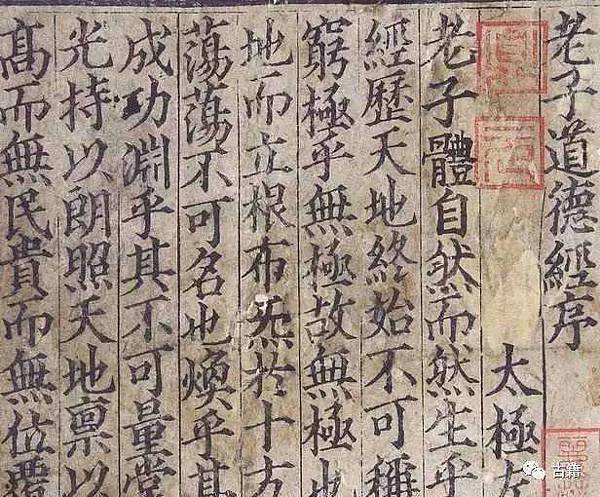 老子道德經序
太極左
老子體自然而然生乎
經歷天地終始不可稱
窮極乎無極故無極也
地而立根布炁於十方
蕩蕩不可名也煥乎其
成功淵乎其不可量堂
光持以朗照天地稟以
髙而無民貴而無位覆
古籍